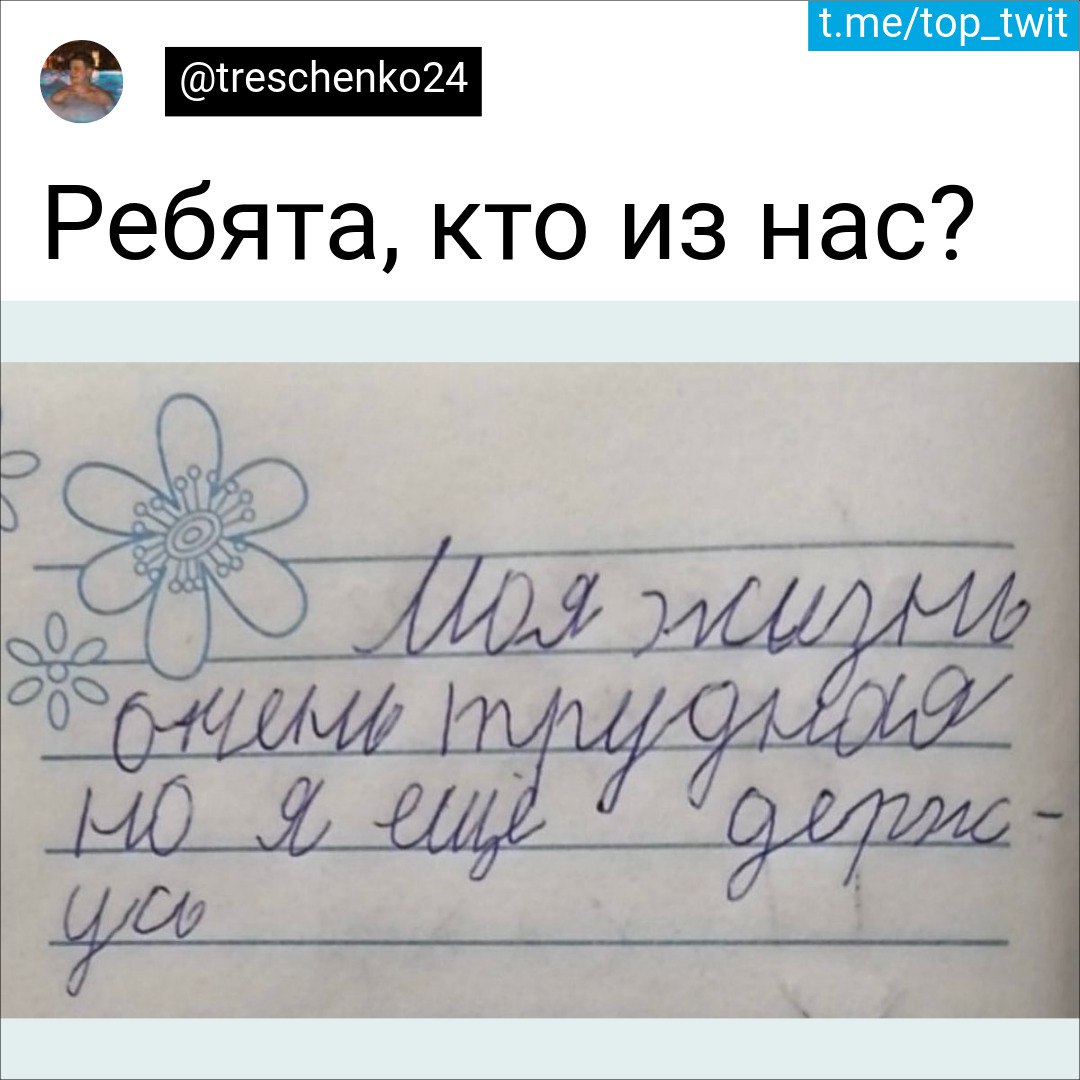 t.me/top_twit
@treschenko24
Ребята, кто из нас?
Моя жизнь
очень трудная
но я ещё держ-
усь